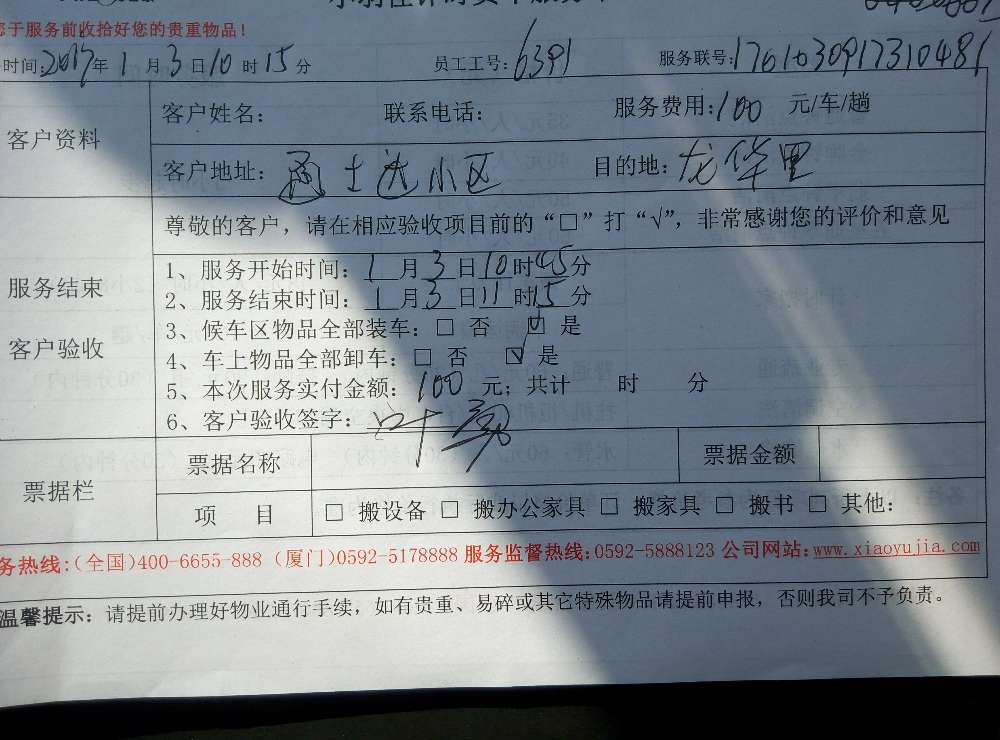 您于服务前收拾好您的贵重物品！
时间：2017年1月3日10时15分 员工工号：6391 服务联号：1761030917310481
客户资料
客户姓名： 联系电话： 服务费用：100 元/车/趟
客户地址： 小区 目的地：龙华里
尊敬的客户，请在相应验收项目前的“□”打“√”，非常感谢您的评价和意见
服务结束
客户验收
1、服务开始时间：1月3日10时45分
2、服务结束时间：1月3日11时15分
3、候车区物品全部装车：□ 否 ☑ 是
4、车上物品全部卸车：□ 否 ☑ 是
5、本次服务实付金额：100 元；共计 时 分
6、客户验收签字：叶
票据栏
票据名称 票据金额
项 目 □ 搬设备 □ 搬办公家具 □ 搬家具 □ 搬书 □ 其他：
务热线：(全国)400-6655-888 (厦门)0592-5178888 服务监督热线：0592-5888123 公司网站：www.xiaoyujia.com
温馨提示：请提前办理好物业通行手续，如有贵重、易碎或其它特殊物品请提前申报，否则我司不予负责。